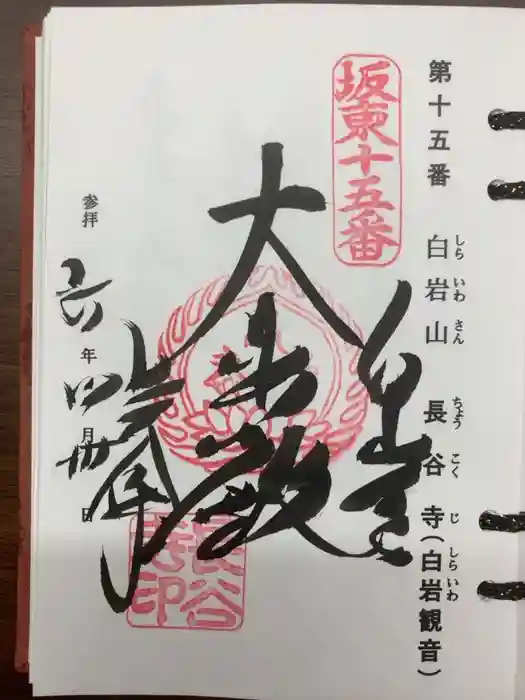 第十五番 白岩山 長谷寺(白岩観音)
しらいわさん ちょうこくじ しらいわ
坂東十五番
大悲殿
参拝 六年四月卅日
長谷寺印